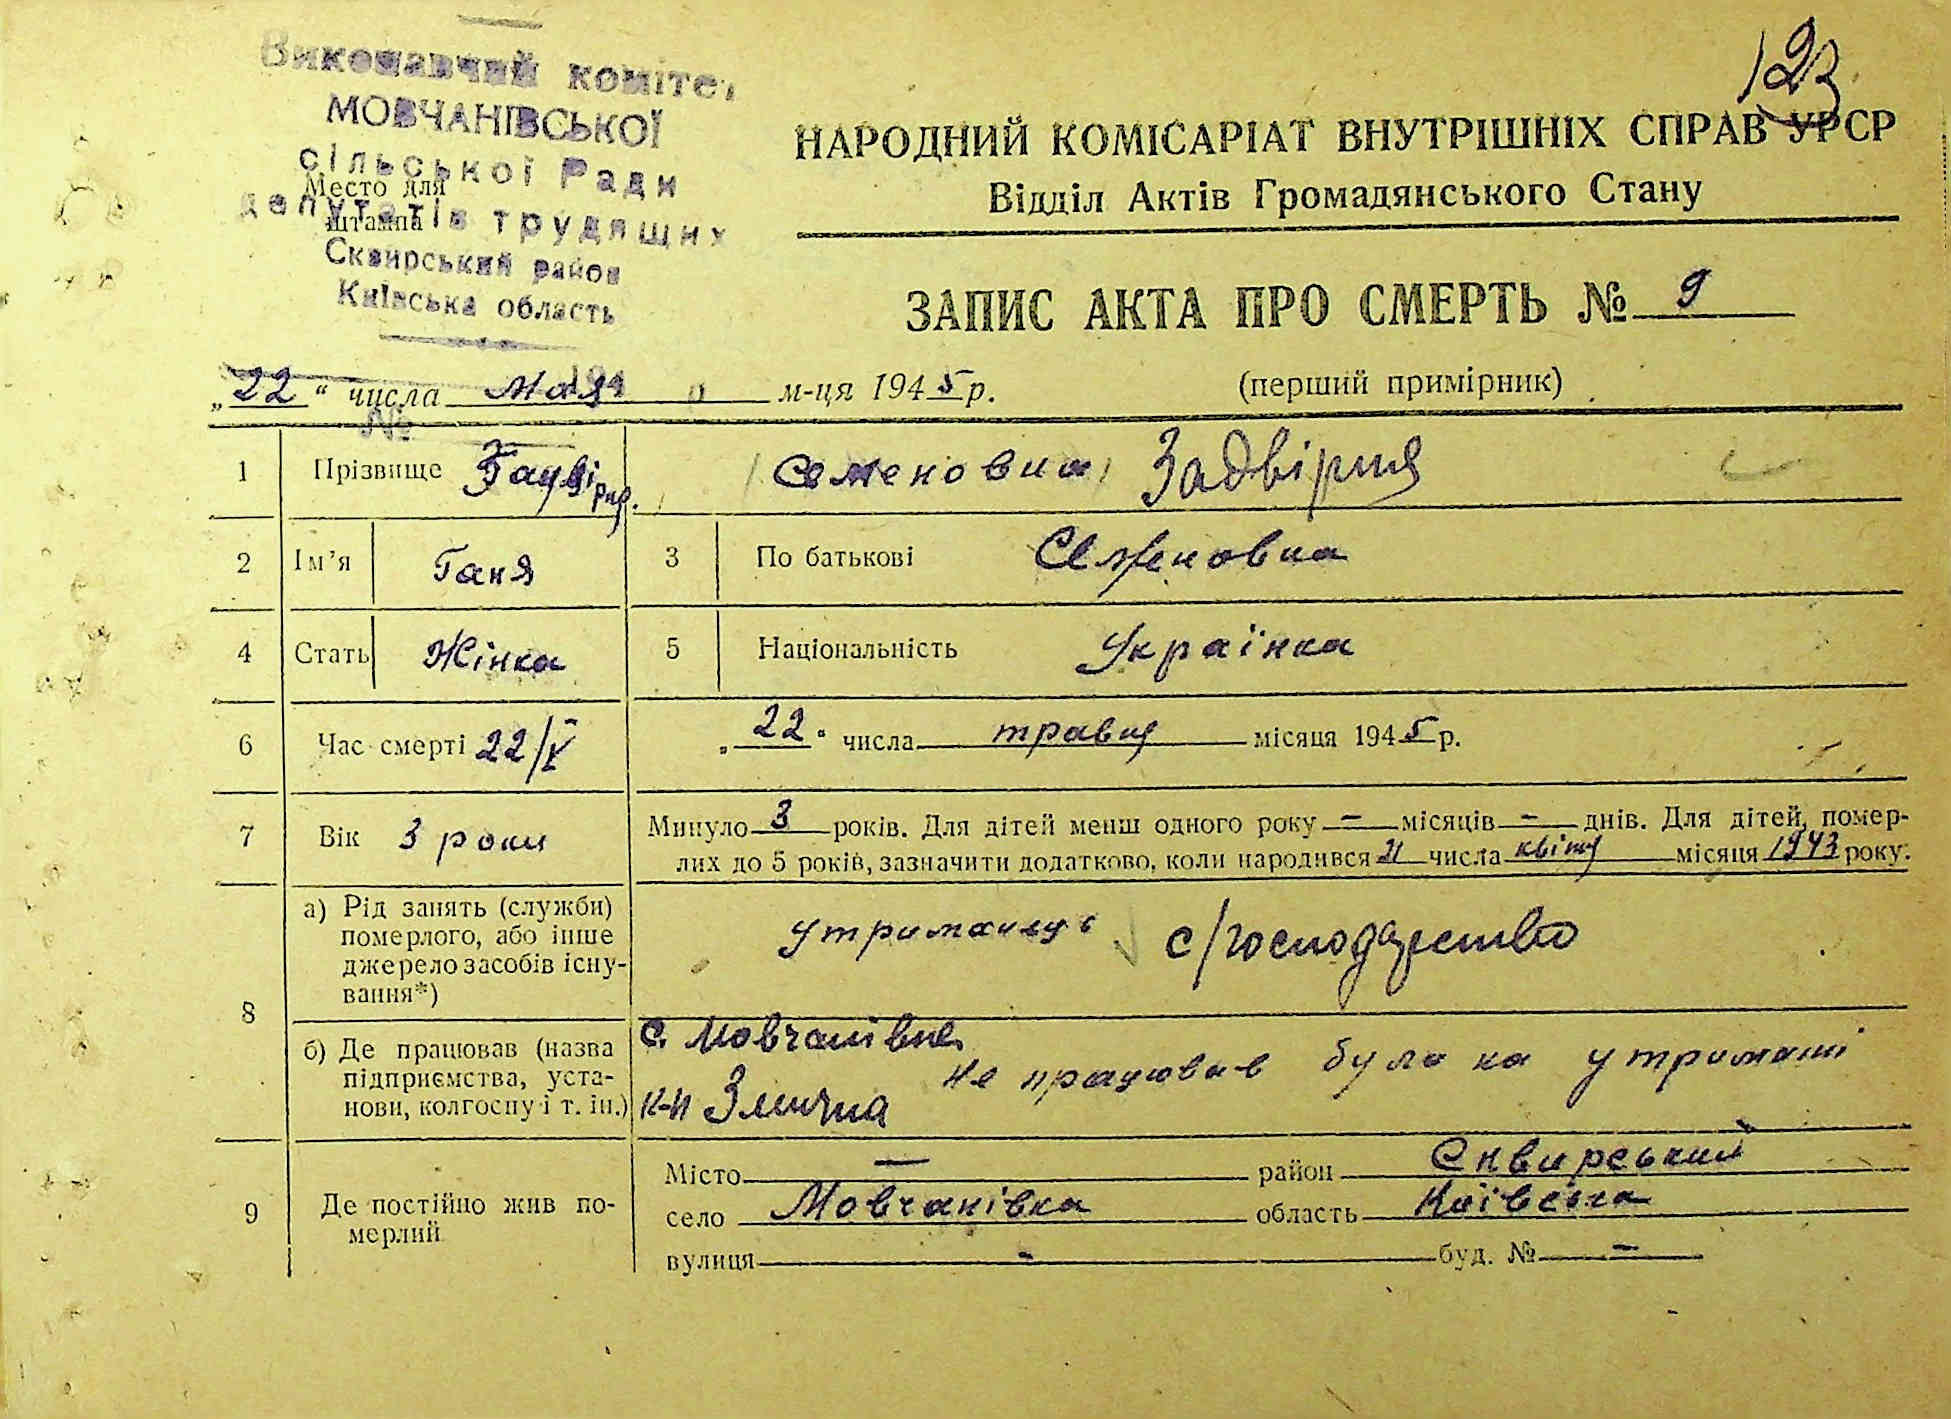 123
Виконавчий комітет
МОВЧАНІВСЬКОЇ
сільської Ради
Место для
штампа
депутатів трудящих
Сквирський район
Київська область
НАРОДНИЙ КОМІСАРІАТ ВНУТРІШНІХ СПРАВ УРСР
Відділ Актів Громадянського Стану
ЗАПИС АКТА ПРО СМЕРТЬ № 9
„22“ числа мая м-ця 1945 р. (перший примірник)
№
1 Прізвище Семеновна Задвірня
2 Ім’я Ганя 3 По батькові Семеновна
4 Стать Жінка 5 Національність Українка
6 Час смерті 22/V „22“ числа травня місяця 1945 р.
7 Вік 3 роки Минуло 3 років. Для дітей менш одного року – місяців – днів. Для дітей, помер-
лих до 5 років, зазначити додатково, коли народився 21 числа квітня місяця 1943 року.
8 а) Рід занять (служби)
померлого, або інше
джерело засобів існу-
вання*)
с/господарство
б) Де працював (назва
підприємства, уста-
нови, колгоспу і т. ін.)
с. Мовчанівка
не працював була на утриманні
9 Де постійно жив по-
мерлий
Місто — район Сквирський
село Мовчанівка область Київська
вулиця - буд. № –